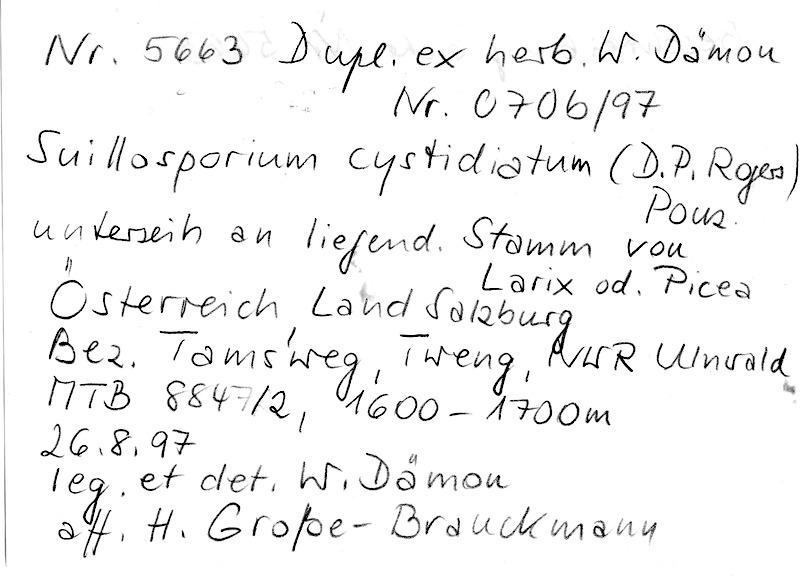 Nr. 5663 Dupl. ex herb. W. Dämon
Nr. 0706/97
Suillosporium cystidiatum (D.P. Rogers)
Pouz.
unterseits an liegend. Stamm von
Larix od. Picea
Österreich, Land Salzburg
Bez. Tamsweg, Tweng, NWR Ulnwald
MTB 8847/2, 1600-1700m
26.8.97
leg. et det. W. Dämon
aff. H. Große-Brauckmann